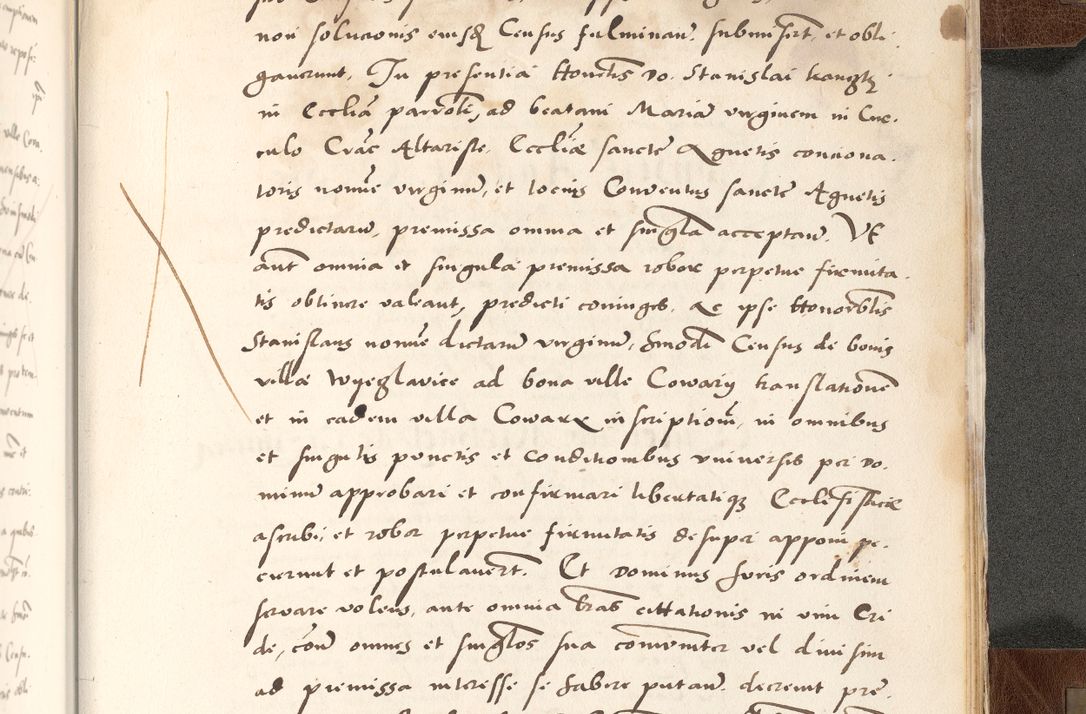 non solucionis eiusdem Census fulminan̄. submiser̄t, et obli-
gaverunt, In presentia Honor̄lis Do. Stanislai
in Eccl̄ia parroc̄li, ad beatam Mariā virginem in Cir-
culo Crac̄ Altariste, Eccl̄iæ sancte Agnetis conciona-
toris nomīe virginū, et tocius Conventus sancte Agnetis
predictarū, premissa omnia et sinḡla acceptan̄. Vt
aut̄ omnia et singula premissa robor perpetue firmita-
tis obtinere valeant, predicti coniuges, ac ipse Honorabl̄is
Stanislaus nomīe dictarū virginū, h̄modi Census de bonis
villæ Wyeglavice ad bona ville Cowary translationē
et in eadem villa Cowary inscriptionē, in omnibus
et singulis punctis et conditionibus universis per Do-
minū approbari et confirmari libertatiq3 Ecclesiasticæ
ascribi, et robor perpetue firmitatis desuper apponi pe-
cierunt et postulaver̄t. Et Dominus Juris ordinem
servare volens, ante omnia l̄ras cittationis in vim Cri-
de, con̄ omnes et sinḡlos sua com̄uniter vel divisim
ad premissa interesse se habere putan̄. decrevit prē-